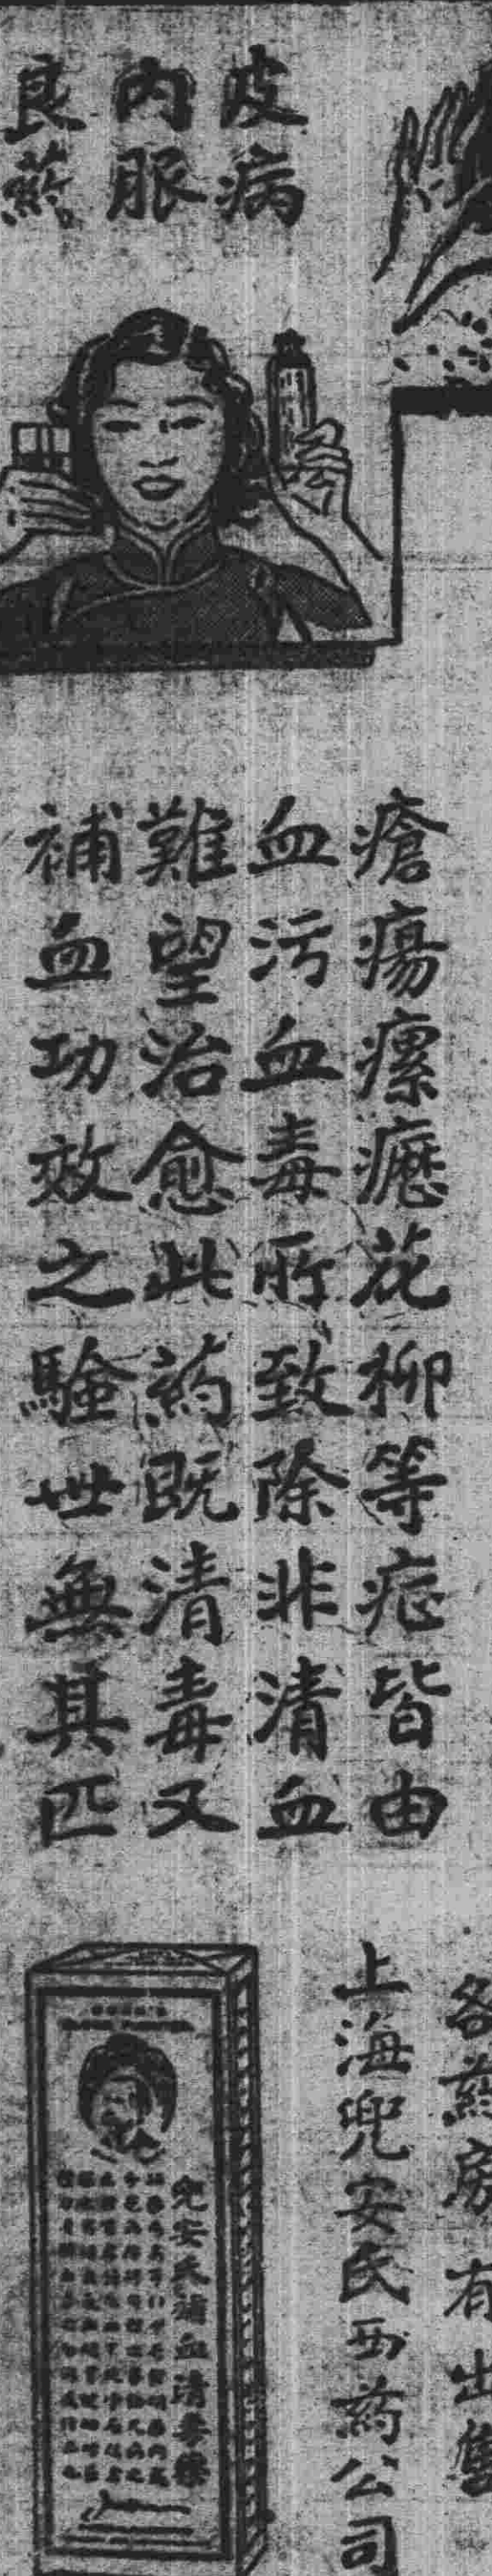 皮病
內服
良藥
瘡瘍瘰癧花柳等症皆由
血污血毒所致除非清血
難望治愈此药既清毒又
補血功效之驗世無其匹
各药房有出售
上海兜安氏西药公司
兜安氏補血清毒藥